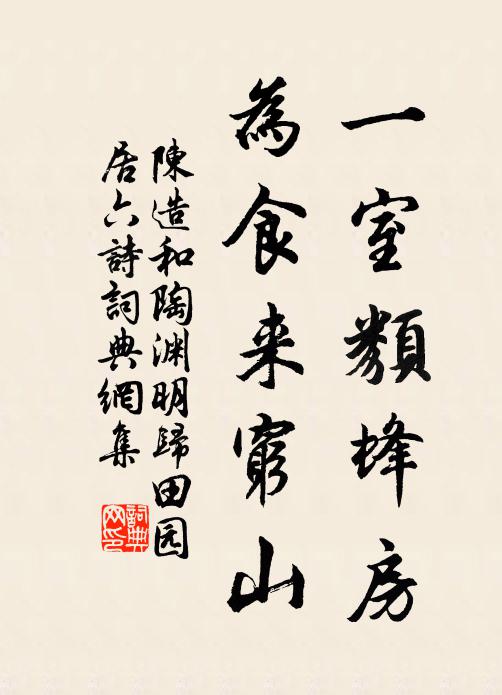 一室類蜂房
為食来窮山
陳造和陶淵明歸田园
居六詩詞典網集
詞典
网印